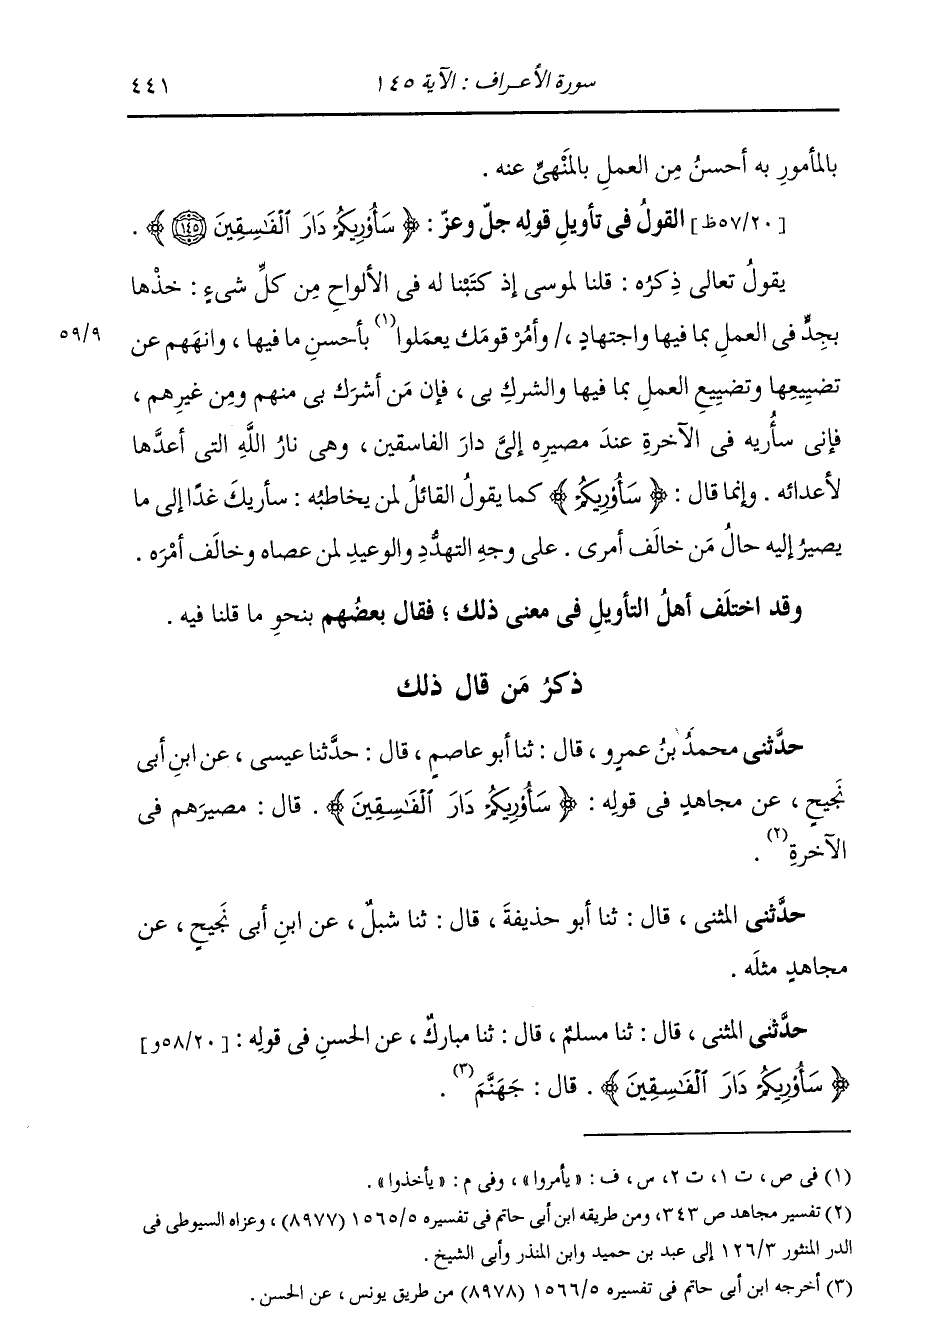 سورة الأعراف : الآية ١٤٥ ٤٤١
بالمأمورِ به أحسنُ مِن العملِ بالمَنْهىِّ عنه .
[٥٧/٢٠ظ] القولُ فى تأويلِ قولِه جلّ وعزّ : ﴿ سَأُوْرِيكُمْ دَارَ ٱلْفَٰسِقِينَ ١٤٥ ﴾ .
يقولُ تعالى ذِكرُه : قلنا لموسى إذ كتَبْنا له فى الألواحِ مِن كلِّ شىءٍ : خذْها
بجِدٍّ فى العملِ بما فيها واجتهادٍ ، / وأمُرْ قومَك يعمَلوا(١) بأحسنِ ما فيها ، وانهَهم عن ٥٩/٩
تضيِيعِها وتضيِيعِ العملِ بما فيها والشركِ بى ، فإن مَن أشرَك بى منهم ومِن غيرِهم ،
فإنى سأُريه فى الآخرةِ عندَ مصيرِه إلىَّ دارَ الفاسقين ، وهى نارُ اللَّهِ التى أعدَّها
لأعدائه . وإنما قال : ﴿ سَأُوْرِيكُمْ ﴾ كما يقولُ القائلُ لمن يخاطبُه : سأريكَ غدًا إلى ما
يصيرُ إليه حالُ مَن خالَف أمرى . على وجهِ التهدُّدِ والوعيدِ لمن عصاه وخالَف أمْرَه .
وقد اختلَف أهلُ التأويلِ فى معنى ذلك ؛ فقال بعضُهم بنحوِ ما قلنا فيه .
ذكرُ مَن قال ذلك
حدَّثنى محمدُ بنُ عمرٍو ، قال : ثنا أبو عاصمٍ ، قال : حدَّثنا عيسى ، عن ابنِ أبى
نَجيحٍ ، عن مجاهدٍ فى قولِه : ﴿ سَأُوْرِيكُمْ دَارَ ٱلْفَٰسِقِينَ ﴾ . قال : مصيرَهم فى
الآخرةِ(٢) .
حدَّثنى المثنى ، قال : ثنا أبو حذيفةَ ، قال : ثنا شبلٌ ، عن ابنِ أبى نَجيحٍ ، عن
مجاهدٍ مثلَه .
حدَّثنى المثنى ، قال : ثنا مسلمٌ ، قال : ثنا مباركٌ ، عن الحسنِ فى قولِه : [٥٨/٢٠و]
﴿ سَأُوْرِيكُمْ دَارَ ٱلْفَٰسِقِينَ ﴾ . قال : جَهَنَّمَ(٣) .
(١) فى ص ، ت ١ ، ت ٢ ، س ، ف : «يأمروا» ، وفى م : «يأخذوا» .
(٢) تفسير مجاهد ص ٣٤٣ ، ومن طريقه ابن أبى حاتم فى تفسيره ١٥٦٥/٥ (٨٩٧٧) ، وعزاه السيوطى فى
الدر المنثور ١٢٦/٣ إلى عبد بن حميد وابن المنذر وأبى الشيخ .
(٣) أخرجه ابن أبى حاتم فى تفسيره ١٥٦٦/٥ (٨٩٧٨) من طريق يونس ، عن الحسن .